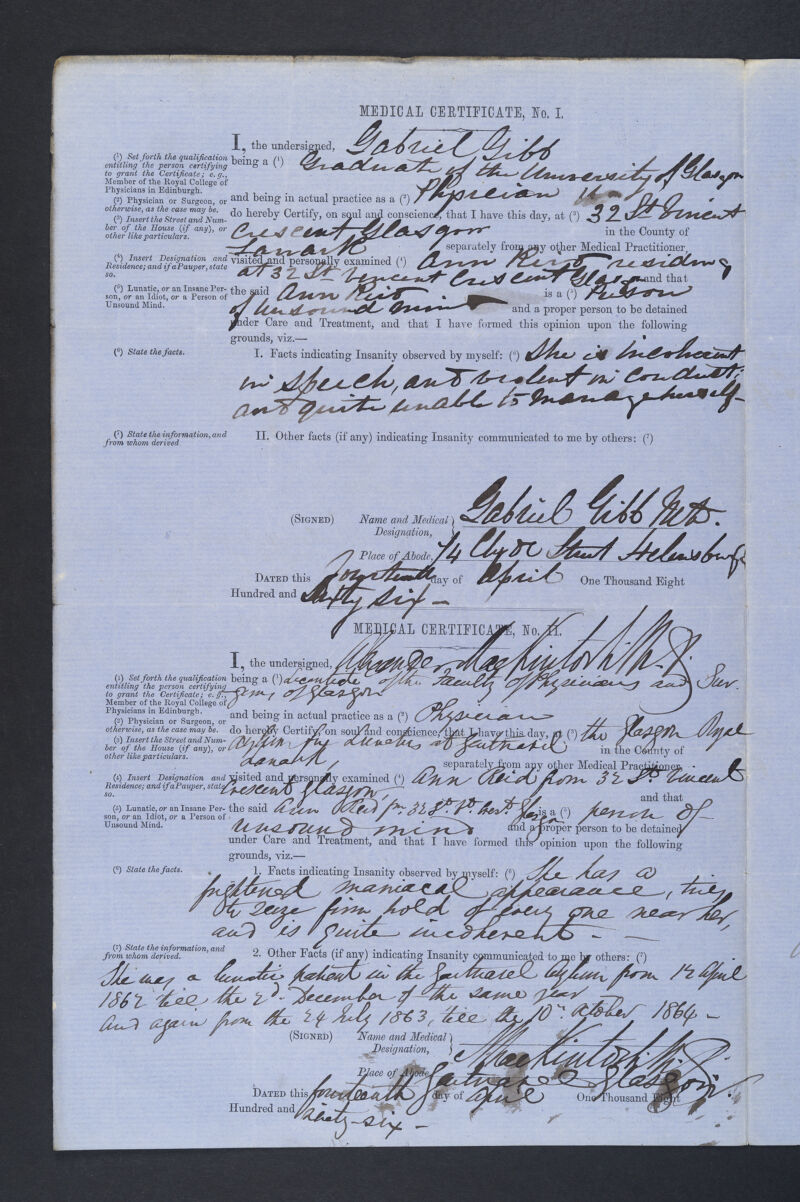 MEDICAL CERTIFICATE, No. I.
I, the undersigned, Gabriel Gibb
being a (¹) Graduate of the University of Glasgow
and being in actual practice as a (²) Physician
do hereby Certify, on soul and conscience, that I have this day, at (³) 32 St Vincent
Crescent Glasgow in the County of
Lanark separately from any other Medical Practitioner,
visited and personally examined (⁴) Ann Reid residing
at 32 St Vincent Crescent Glasgow and that
the said Ann Reid is a (⁵) Person
of unsound mind and a proper person to be detained
under Care and Treatment, and that I have formed this opinion upon the following
grounds, viz.—
I. Facts indicating Insanity observed by myself: (⁶) She is incoherent
in speech, and violent in conduct,
and quite unable to manage herself—
II. Other facts (if any) indicating Insanity communicated to me by others: (⁷)
(¹) Set forth the qualification
entitling the person certifying
to grant the Certificate; e.g.,
Member of the Royal College of
Physicians in Edinburgh.
(²) Physician or Surgeon, or
otherwise, as the case may be.
(³) Insert the Street and Num-
ber of the House (if any), or
other like particulars.
(⁴) Insert Designation and
Residence; and if a Pauper, state
so.
(⁵) Lunatic, or an Insane Per-
son, or an Idiot, or a Person of
Unsound Mind.
(⁶) State the facts.
(⁷) State the information, and
from whom derived
(SIGNED) Name and Medical
Designation, Gabriel Gibb MD.
Place of Abode, 74 Clyde Street Helensburgh
DATED this fourteenth day of April One Thousand Eight
Hundred and Sixty six—
MEDICAL CERTIFICATE, No. II.
I, the undersigned, Alexander Mackintosh M.D.
being a (¹) Licentiate of the Faculty of Physicians and Sur-
geons of Glasgow
and being in actual practice as a (²) Physician
do hereby Certify, on soul and conscience, that I have this day, at (³) the Glasgow Royal
Asylum for Lunatics at Gartnavel in the County of
Lanark, separately from any other Medical Practitioner,
visited and personally examined (⁴) Ann Reid from 32 St Vincent
Crescent Glasgow, and that
the said Ann Reid fm. 32 St. Vt. Crest. is a (⁵) person of
unsound mind and a proper person to be detained
under Care and Treatment, and that I have formed this opinion upon the following
grounds, viz.—
1. Facts indicating Insanity observed by myself: (⁶) She has a
frightened maniacal appearance, tries
to seize firm hold of every one near her,
and is quite incoherent—
2. Other Facts (if any) indicating Insanity communicated to me by others: (⁷)
She was a lunatic patient in the Gartnavel Asylum from 12 April
1862 till the 2d. December of the same year
and again from the 24 July 1863, till the 10th. October 1864—
(1) Set forth the qualification
entitling the person certifying
to grant the Certificate; e.g.,
Member of the Royal College of
Physicians in Edinburgh.
(2) Physician or Surgeon, or
otherwise, as the case may be.
(3) Insert the Street and Num-
ber of the House (if any), or
other like particulars.
(4) Insert Designation and
Residence; and if a Pauper, state
so.
(5) Lunatic, or an Insane Per-
son, or an Idiot, or a Person of
Unsound Mind.
(⁶) State the facts.
(⁷) State the information, and
from whom derived.
(SIGNED) Name and Medical
Designation, MacKintosh M.D.
Place of Abode, Gartnavel Glasgow.
DATED this fourteenth day of April One Thousand Eight
Hundred and sixty-six—